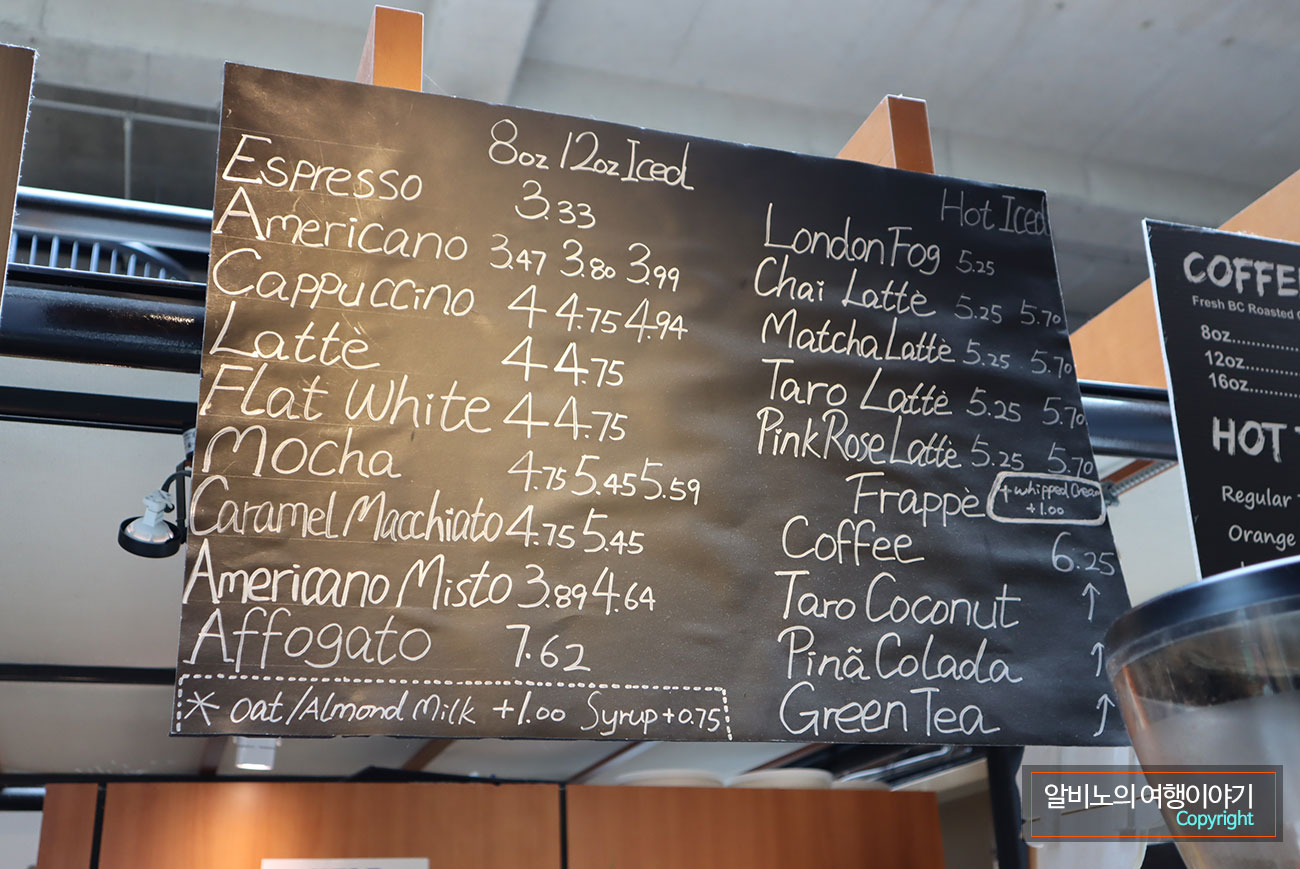 8oz 12oz Iced
Espresso 3.33
Americano 3.47 3.80 3.99
Cappuccino 4 4.75 4.94
Lattè 4 4.75
Flat White 4 4.75
Mocha 4.75 5.45 5.59
Caramel Macchiato 4.75 5.45
Americano Misto 3.89 4.64
Affogato 7.62
* oat/Almond Milk +1.00 Syrup +0.75
Hot Iced
London Fog 5.25
Chai Lattè 5.25 5.70
Matcha Lattè 5.25 5.70
Taro Lattè 5.25 5.70
Pink Rose Lattè 5.25 5.70
Frappè + whipped Cream
+1.00
Coffee 6.25
Taro Coconut ↑
Pinã Colada ↑
Green Tea ↑
COFFE
Fresh BC Roasted
8oz
12oz
16oz
HOT
Regular
Orange
알비노의 여행이야기
Copyright